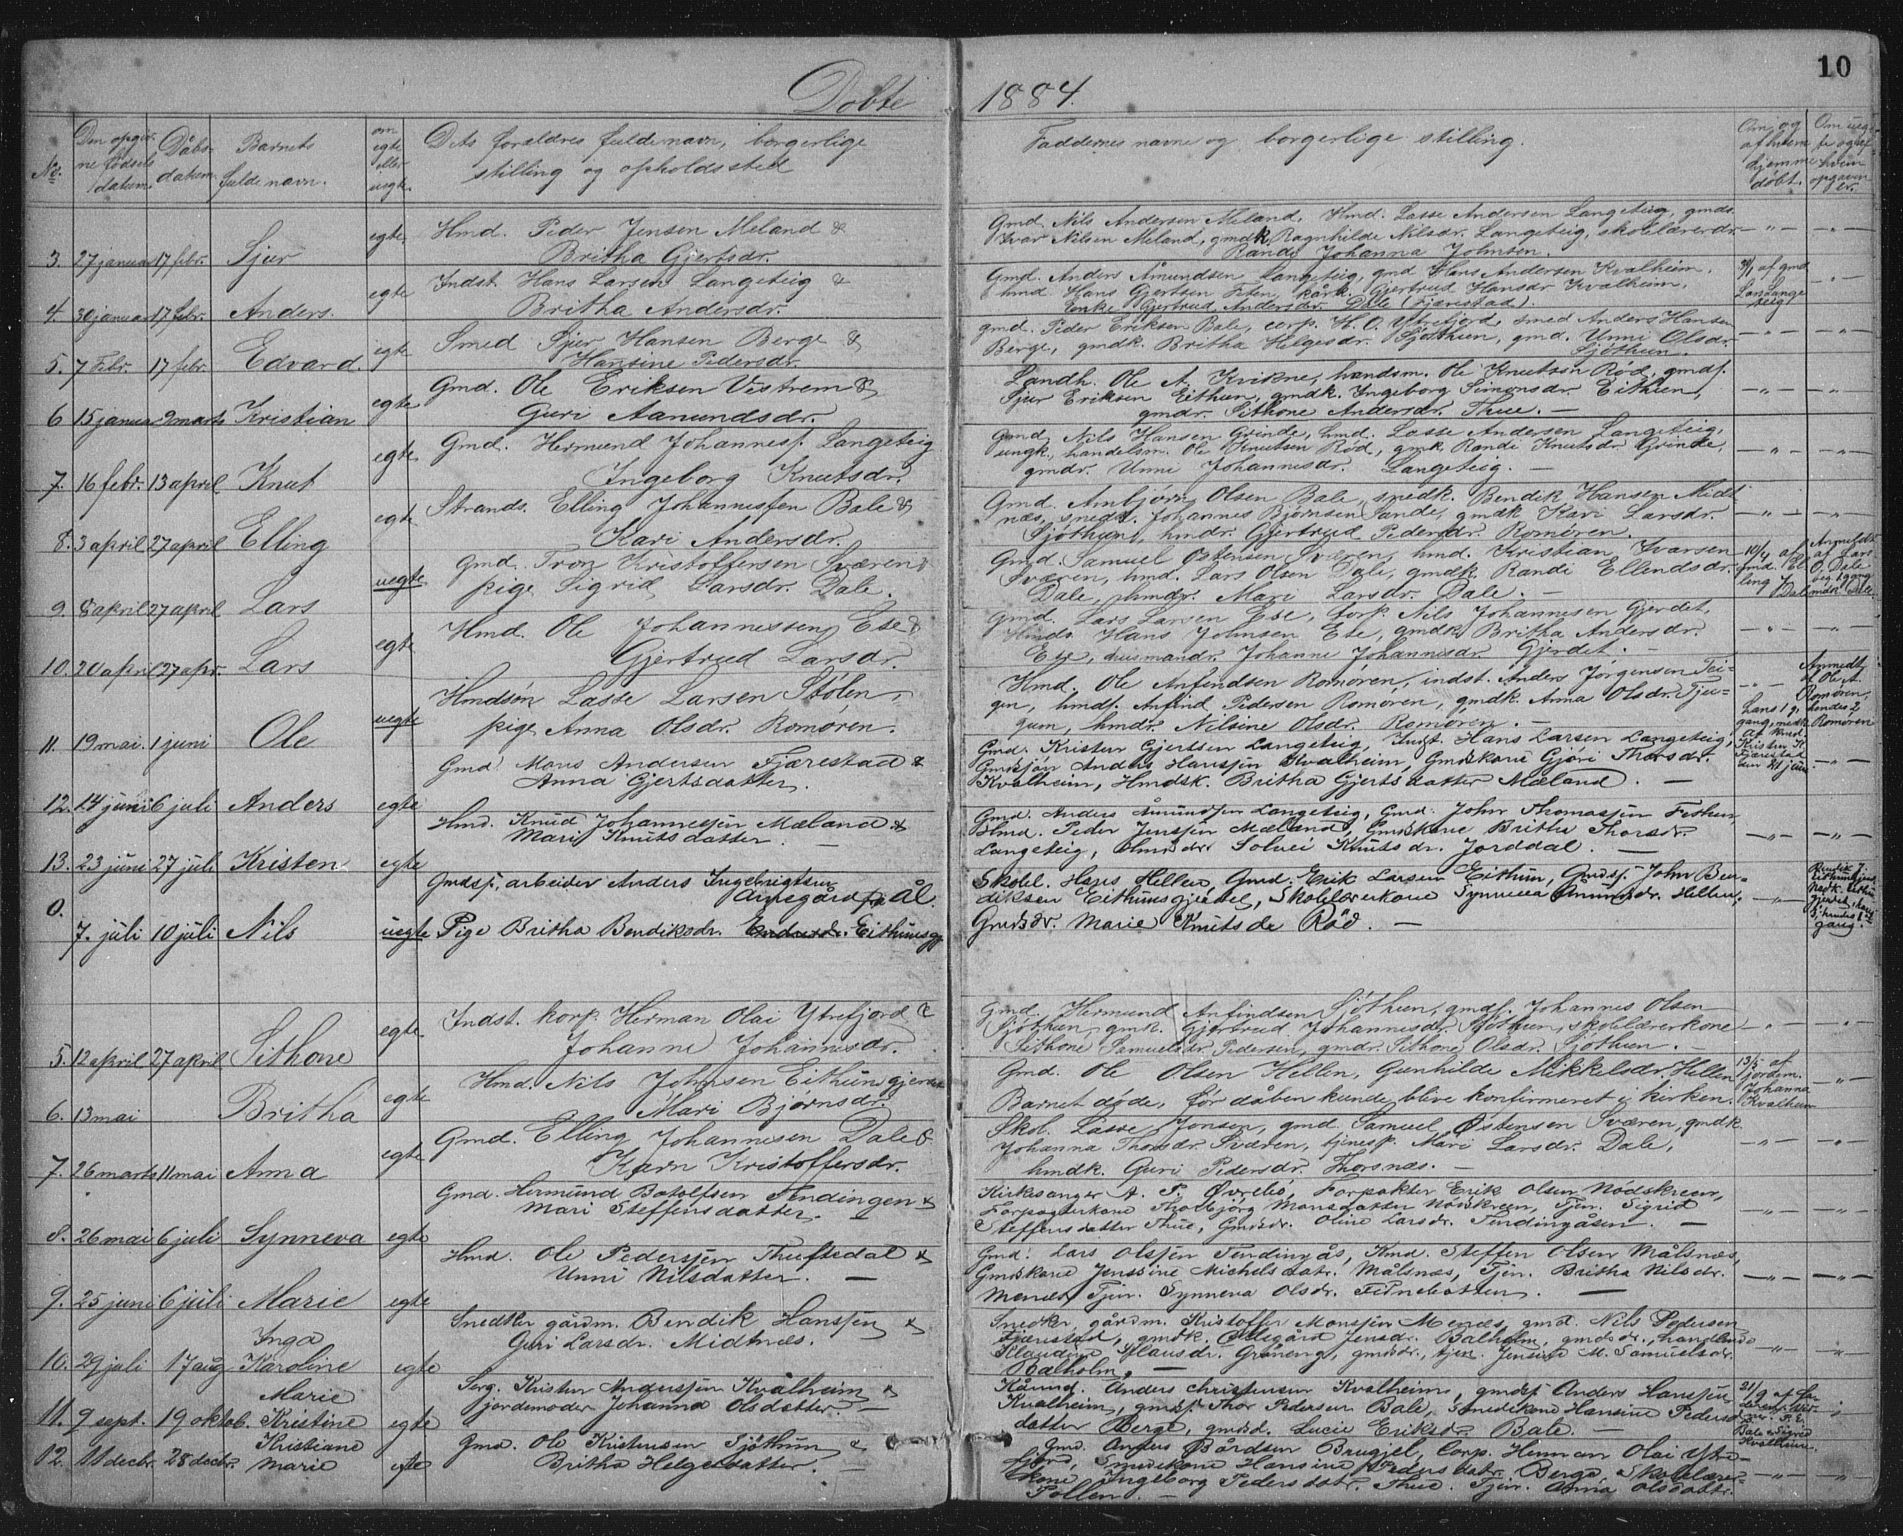 10
Döbte 1884.
No.
Den opgiv-
ne fødsels
datum.
Dåbs-
datum.
Barnets
fulde navn.
om
egte
eller
uegte.
Dets forældres fulde navn, borgerlige
stilling og opholdssted
Faddernes navne og borgerlige stilling.
Om og
af hvem
hjemme
døbt.
3. 27 januar 17 febr. Sjur egte
Hmd. Peder Jensen Meland &
Britha Gjertsdr.
Gmd. Nils Andersen Meland, Hmd. Lasse Andersen Langeteig, gmds.
Ivar Nilsen Meland, gmdk. Ragnhilde Nilsdr. Langeteig, skolelærerdr.
Randi Johanna Johnsen.
4. 30 januar 17 febr. Anders. egte
Indst. Hans Larsen Langeteig &
Britha Andersdr.
Gmd. Anders Åmundsen Langeteig, gmd Hans Andersen Kvalheim,
hmd. Hans Gjertsen Feten, kårk. Gjertrud Hansdr Kvalheim,
Enke Gjertrud Andersdr. Dale (Fjærestad).
5. 7 Febr. 17 febr. Edvard. egte
Smed Sjur Hansen Berge &
Hansine Pedersdr.
gmd. Peder Eriksen Bale, corp. H. O. Ytrefjord, smed Anders Hansen
Berge, gmdk. Britha Helgesdr. Sjöthun, gmd. Unni Olsdr.
Sjöthun.
6 15 januar 9 marts Kristian egte
Gmd. Ole Eriksen Vestrem &
Guri Aamundsdr.
Landh. Ole A. Kvikne, handsm. Ole Knutsen Röd, gmds.
Sjur Eriksen Eithun, gmdk. Ingeborg Simonsdr. Eithun,
gmdr. Sithone Andersdr. Thue. —
7. 16 febr. 13 april Knut egte
Gmd. Hermund Johanness. Langeteig
Ingeborg Knutsdr.
Gmd. Nils Hansen Grinde, hmd. Lasse Andersen Langeteig,
ungk., handelsm. Ole Knutsen Röd, gmk Randi Knutsdr. Grinde,
gmdr. Unni Johannesdr. Langeteig. —
8. 3 april 27 april Elling egte
Strands. Elling Johannessen Bale &
Kari Andersdr.
Gmd. Anbjørn Olsen Bale, snedk. Bendik Hansen Midt
næs, snedk. Johannes Björnsen Sande, gmdk Kari Larsdr.
Sjöthun, hmdr. Gjertrud Pedersdr. Romören.
9. 8 april 27 april Lars uegte
Gmd. Tron Kristoffersen Sværen &
pige Sigrid Larsdr. Dale.
Gmd. Samuel Østensen Sværen, hmd. Kristian Ivarsen
Sværen, hmd. Lars Olsen Dale, gmdk. Randi Ellendsdr.
Dale, hmdr. Mari Larsdr. Dale. —
10. 20 april 27 apr. Lars egte
Hmd. Ole Johannessen Ese &
Gjertrud Larsdr.
Gmd. Lars Larsen Ese, forp. Nils Johannesen Gjerdet,
Hmds. Hans Johnsen Ese, gmdk. Britha Andersdr.
Ese, husmandr. Johanne Johannesdr. Gjerdet. —
11. 19 mai. 1 juni Ole uegte
Hmdsön Lasse Larsen Stölen,
pige Anna Olsdr. Romören.
Hmd. Ole Anfindsen Romören, indst. Anders Jörgensen Tei-
gen, hmds. Anfind Pedersen Romören, gmdk. Anna Olsdr. Tju-
gum, hmdr. Nilsine Olsdr. Romören. —
12. 14 juni 6 juli Anders egte
Gmd. Mons Andersen Fjærestad &
Anna Gjertsdatter.
Gmd. Kristen Gjertsen Langeteig, Indst Hans Larsen Langeteig,
Gmdsön Anders Hanssen Kvalheim, Gmdskone Gjöri Thorsdr.
Kvalheim, Hmdsk. Britha Gjertsdatter Mæland. —
13. 23 juni 27 juli Kristen egte
Hmd. Knud Johannessen Mæland &
Mari Knutsdatter. —
Gmd. Anders Amundsen Langeteig, Gmd. John Thomassen Fethun,
Hmd. Peder Jenssen Mæland, Gmdskone Britha Thorsdr.
Langeteig, Hmdsdr Solvei Knutsdr. Jorddal. —
0. 7. juli 10 juli Nils uegte
Gmdss. arbeider Anders Ingebrigtsen
fra Ål.
Pige Britha Bendiksdr. Eithunsgj.
Skolel. Hans Hellen, Gmd. Erik Larsen Eithun, Gmds. John Ben-
diksen Eithunsgjerdet, Skolelærerkone Synneva Amundsdr. Hellen,
Gmdsdr. Marie Knutsdr Röd. —
5. 12 april 27 april Sithone egte
Indst. korp. Herman Olai Ytrefjord &
Johanne Johannesdr.
Gmd. Hermund Anfindsen Sjöthun, gmds. Johannes Olsen
Sjöthun, gmk. Gjertrud Johannesdr. Sjöthun, skolelærerkone
Sithone Samuelsdr. Pedersen, gmdr. Sithone Olsdr. Sjöthun. —
6. 13 mai Britha egte
Hmd. Nils Johnsen Eithunsgjerdet
Mari Bjørnsdr.
Gmd. Ole Olsen Hellen, Gunhilde Mikkelsdr. Hellen
Barnet døde, før dåben kunde blive konfirmeret i kirken.
13/5 af
jordem.
Johanna
Kvalheim
7. 26 marts 11 mai Anna egte
Gmd. Elling Johannesen Dale &
Karn Kristoffersdr.
Skol. Lasse Jonsen, gmd. Samuel Østensen Sværen, gmdk.
Johanna Thorsdr. Sværen, tjenesp. Mari Larsdr. Dale,
hmdk. Guri Pedersdr. Thorsnes. —
8. 26 mai 6 juli Synneva egte
Gmd. Hermund Botolfsen Tendingen &
Mari Steffensdatter. —
Kirkesanger A. P. Øvrebö, Forpakter Erik Olsen Nödskreen,
Forpagterkone Thorbjörg Monsdatter Nödskreen, Tjen. Sigrid
Steffensdatter Thue, Gmdsdr. Oline Larsdr. Tendingåsen. —
9. 25 juni 6 juli Marie egte
Hmd. Ole Pederssen Thuftedal &
Unni Nilsdatter. —
Gmd. Lars Olssen Tendingås, Hmd. Steffen Olsen Målsnæs,
Gmdskone Jenssine Michelsdatr. Målsnæs, Tjen. Britha Nilsdr.
Menæs, Tjen. Synneva Olsdr. Finebotten. —
10. 29 juli 17 aug Inga
Karoline egte
Snedker gårdm. Bendik Hanssen &
Guri Larsdr. Midtnæs.
Snedker, gårdm. Kristoffer Monssen Menæs, gmd. Nils Pedersen
Fjærestad, gmdk. Ødegård Jensdr. Balholm, gmdsdr., handlende
Klaudine Klausdr. Gråneng, gmdsdr., tjen. Jensine M. Samuelsdr.
Balholm. —
11. 9 sept. 19 oktob. Marie
Kristine egte
Serg. Kristen Anderssen Kvalheim &
jordemoder Johanna Olsdatter. —
Kårmd. Anders Christensen Kvalheim, gmds Anders Hanssen
Kvalheim, gmds. Thor Pedersen Bale, Smedekone Hansine Peders-
datter Berge, gmdsd. Lucie Eriksdr Bale. —
12. 11 decbr. 28 decbr. Kristiane
Marie egte
Gmd. Ole Kristensen Sjöthun &
Britha Helgesdatter. —
Gmd. Anders Bårdsen Brugjel, Corp. Herman Olai Ytre-
fjord, Smedekone Hansine Pedersdatr. Berge, Skolelærer-
kone Ingeborg Pedersdatr. Thue. Tjen. Anna Olsdattr.
Follen. —